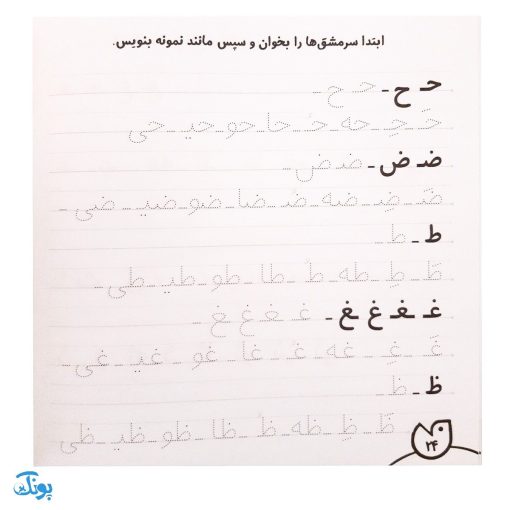 ابتدا سرمشق‌ها را بخوان و سپس مانند نمونه بنویس.
حـ ح - حـ ح -
حَـ - حِـ - حه - حُـ - حا - حو - حیـ - حی
ضـ ض - ضـ ض -
ضَـ - ضِـ - ضه - ضُـ - ضا - ضو - ضیـ - ضی -
ط - ط -
طَ - طِ - طه - طُ - طا - طو - طیـ - طی -
غـ ـغـ ـغ غ - غـ ـغـ ـغ غ -
غَـ - غِـ - غه - غُـ - غا - غو - غیـ - غی -
ظ - ظ -
ظَ - ظِ - ظه - ظُ - ظا - ظو - ظیـ - ظی
۲۴
پونک